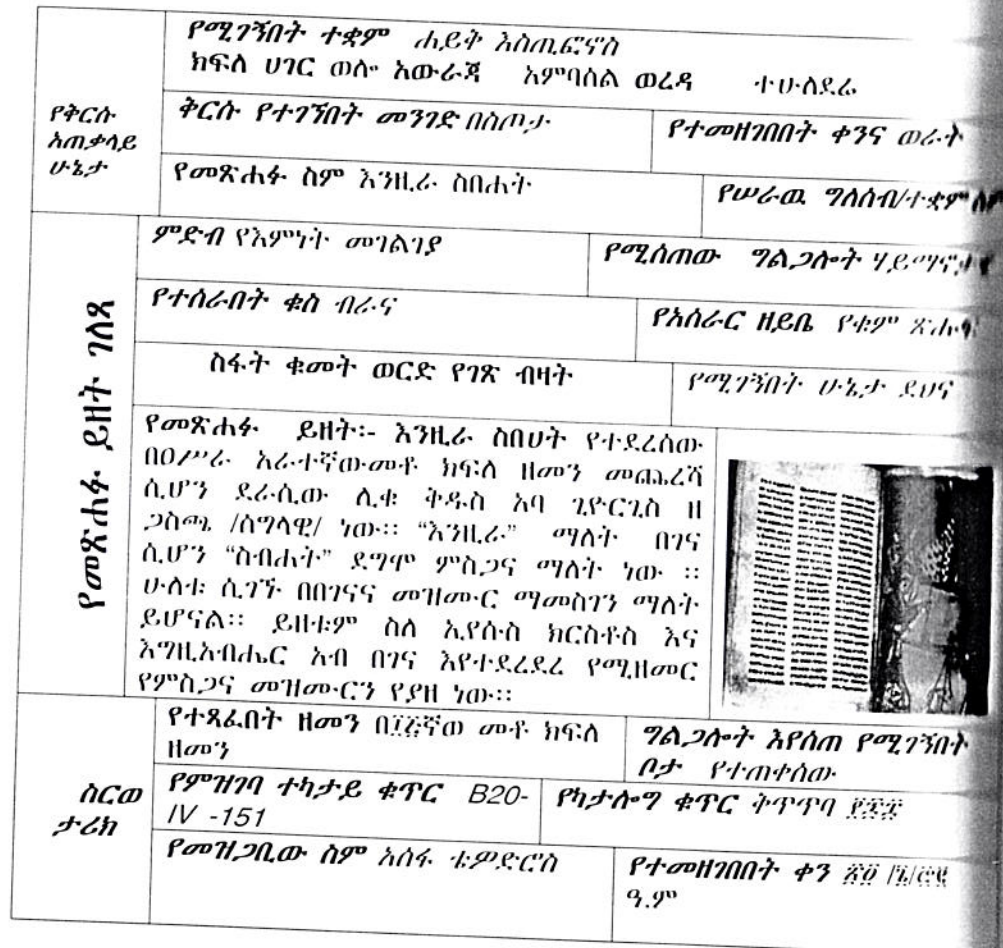 የቅርሱ
አጠቃላይ
ሁኔታ
የሚገኝበት ተቋም ሐይቅ እስጢፎኖስ
ክፍለ ሀገር ወሎ አውራጃ አምባሰል ወረዳ ተሁለደሬ
ቅርሱ የተገኘበት መንገድ በስጦታ
የተመዘገበበት ቀንና ወራት
የመጽሐፉ ስም እንዚራ ስበሐት
የሠራዉ ግለሰብ/ተቋም
የመጽሐፉ ይዘት ገለጻ
ምድብ የእምነት መገልገያ
የሚሰጠው ግልጋሎት
የተሰራበት ቁስ ብራና
የአሰራር ዘይቤ የቁም
ስፋት ቁመት ወርድ የገጽ ብዛት
የሚገኝበት ሁኔታ ደህና
የመጽሐፉ ይዘት፡- እንዚራ ስበሀት የተደረሰው
በዐሥራ አራተኛውመቶ ክፍለ ዘመን መጨረሻ
ሲሆን ደራሲው ሊቁ ቅዱስ አባ ጊዮርጊስ ዘ
ጋስጫ /ሰግላዊ/ ነው። “እንዚራ” ማለት በገና
ሲሆን “ስብሐት” ደግሞ ምስጋና ማለት ነው ።
ሁለቱ ሲገኙ በበገናና መዝሙር ማመስገን ማለት
ይሆናል። ይዘቱም ስለ ኢየሱስ ክርስቶስ እና
እግዚአብሔር አብ በገና እየተደረደረ የሚዘመር
የምስጋና መዝሙርን የያዘ ነው።
ስርወ
ታሪክ
የተጻፈበት ዘመን መቶ ክፍለ
ዘመን
ግልጋሎት እየሰጠ የሚገኝበት
ቦታ የተጠቀሰው
የምዝገባ ተካታይ ቁጥር B20-
IV -151
የካታሎግ ቁጥር ቅጥጥባ
የመዝጋቢው ስም አሰፋ ቴዎድሮስ
የተመዘገበበት ቀን
ዓ.ም